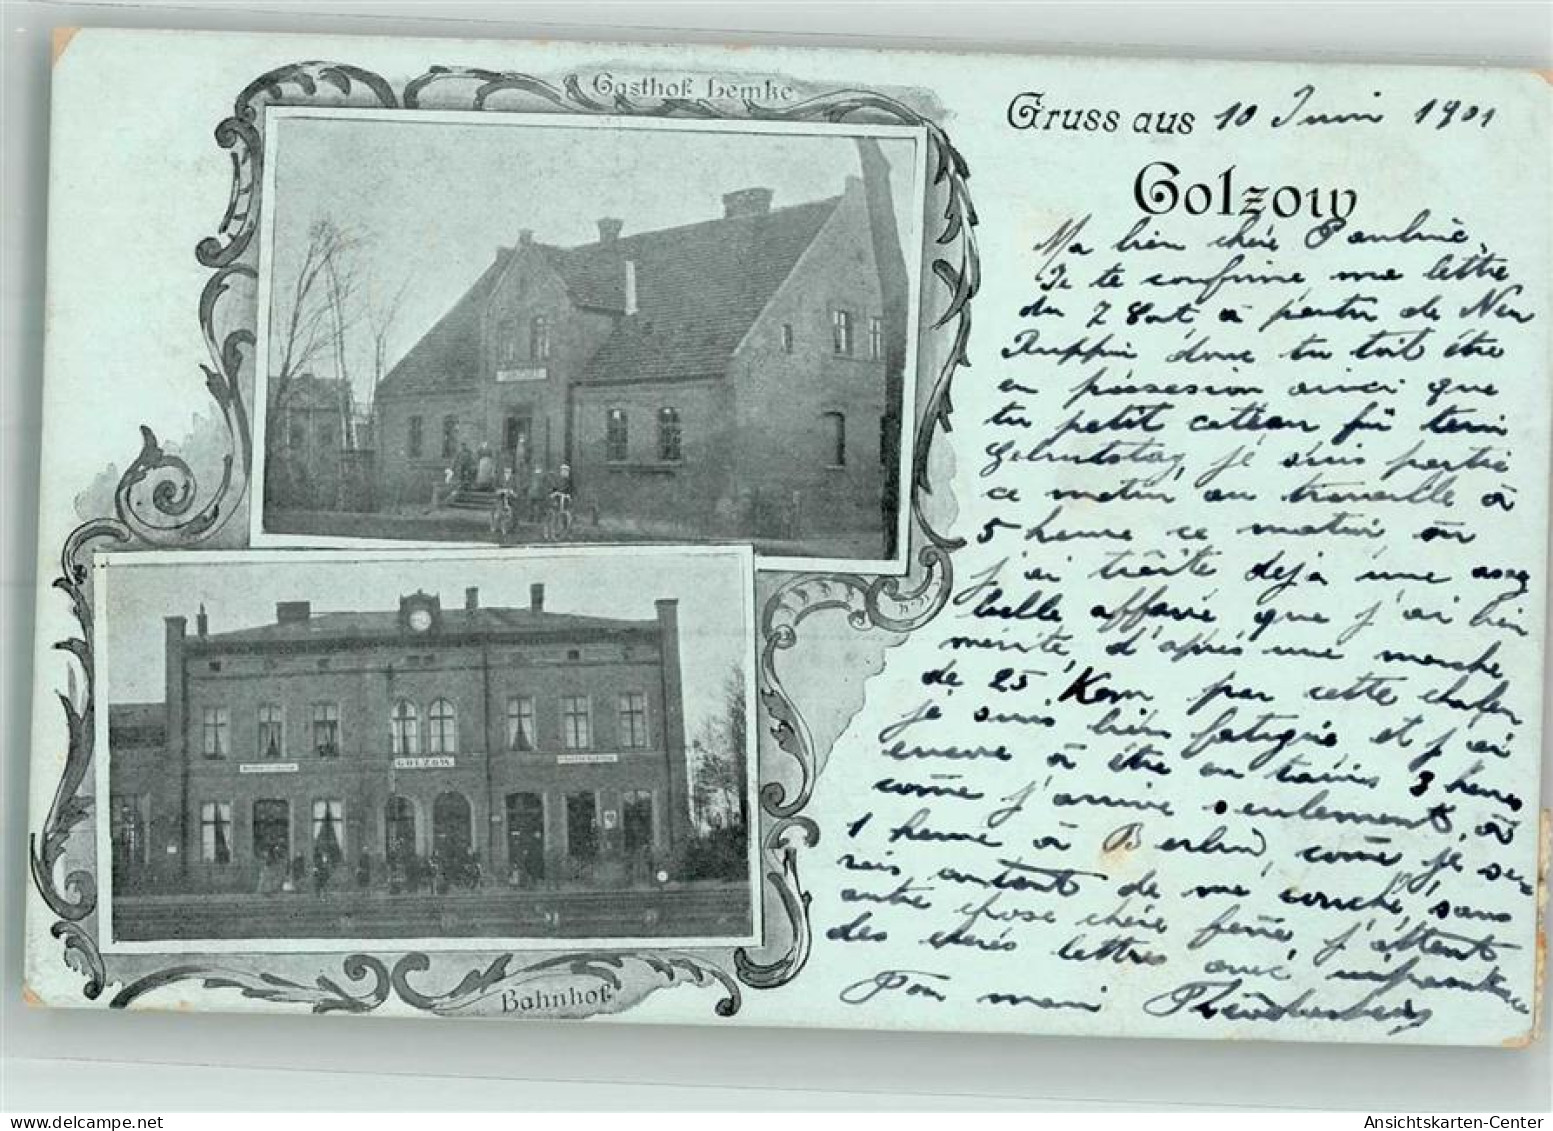 Gasthof Lemke
Gruss aus 10 Juin 1901
Golzow
Ma bien chére Pauline,
Je te confirme ma lettre
du 7 & à partir de Neu
Ruppin donc tu doit être
en possesion ainci que
tu petit cateau für tein
Geburtstag, je suis partie
ce matin au travaille à
5 heure ce matin ou
j'ai traite deja une assez
belle affaire que j'ai bien
mérité, d'aprés une marche
de 25 Kom par cette chaleur
je suis bien fatigué et j'ai
encore à être en train 3 heures
come j'arrive seulement à
1 heure à Berlin, come je se
rais contant de me couché, sans
autre chose chére feme j'attent
des chéres lettres avec impatience
Ton mari
GOLZOW
Bahnhof
Ansichtskarten-Center
delcampe.net